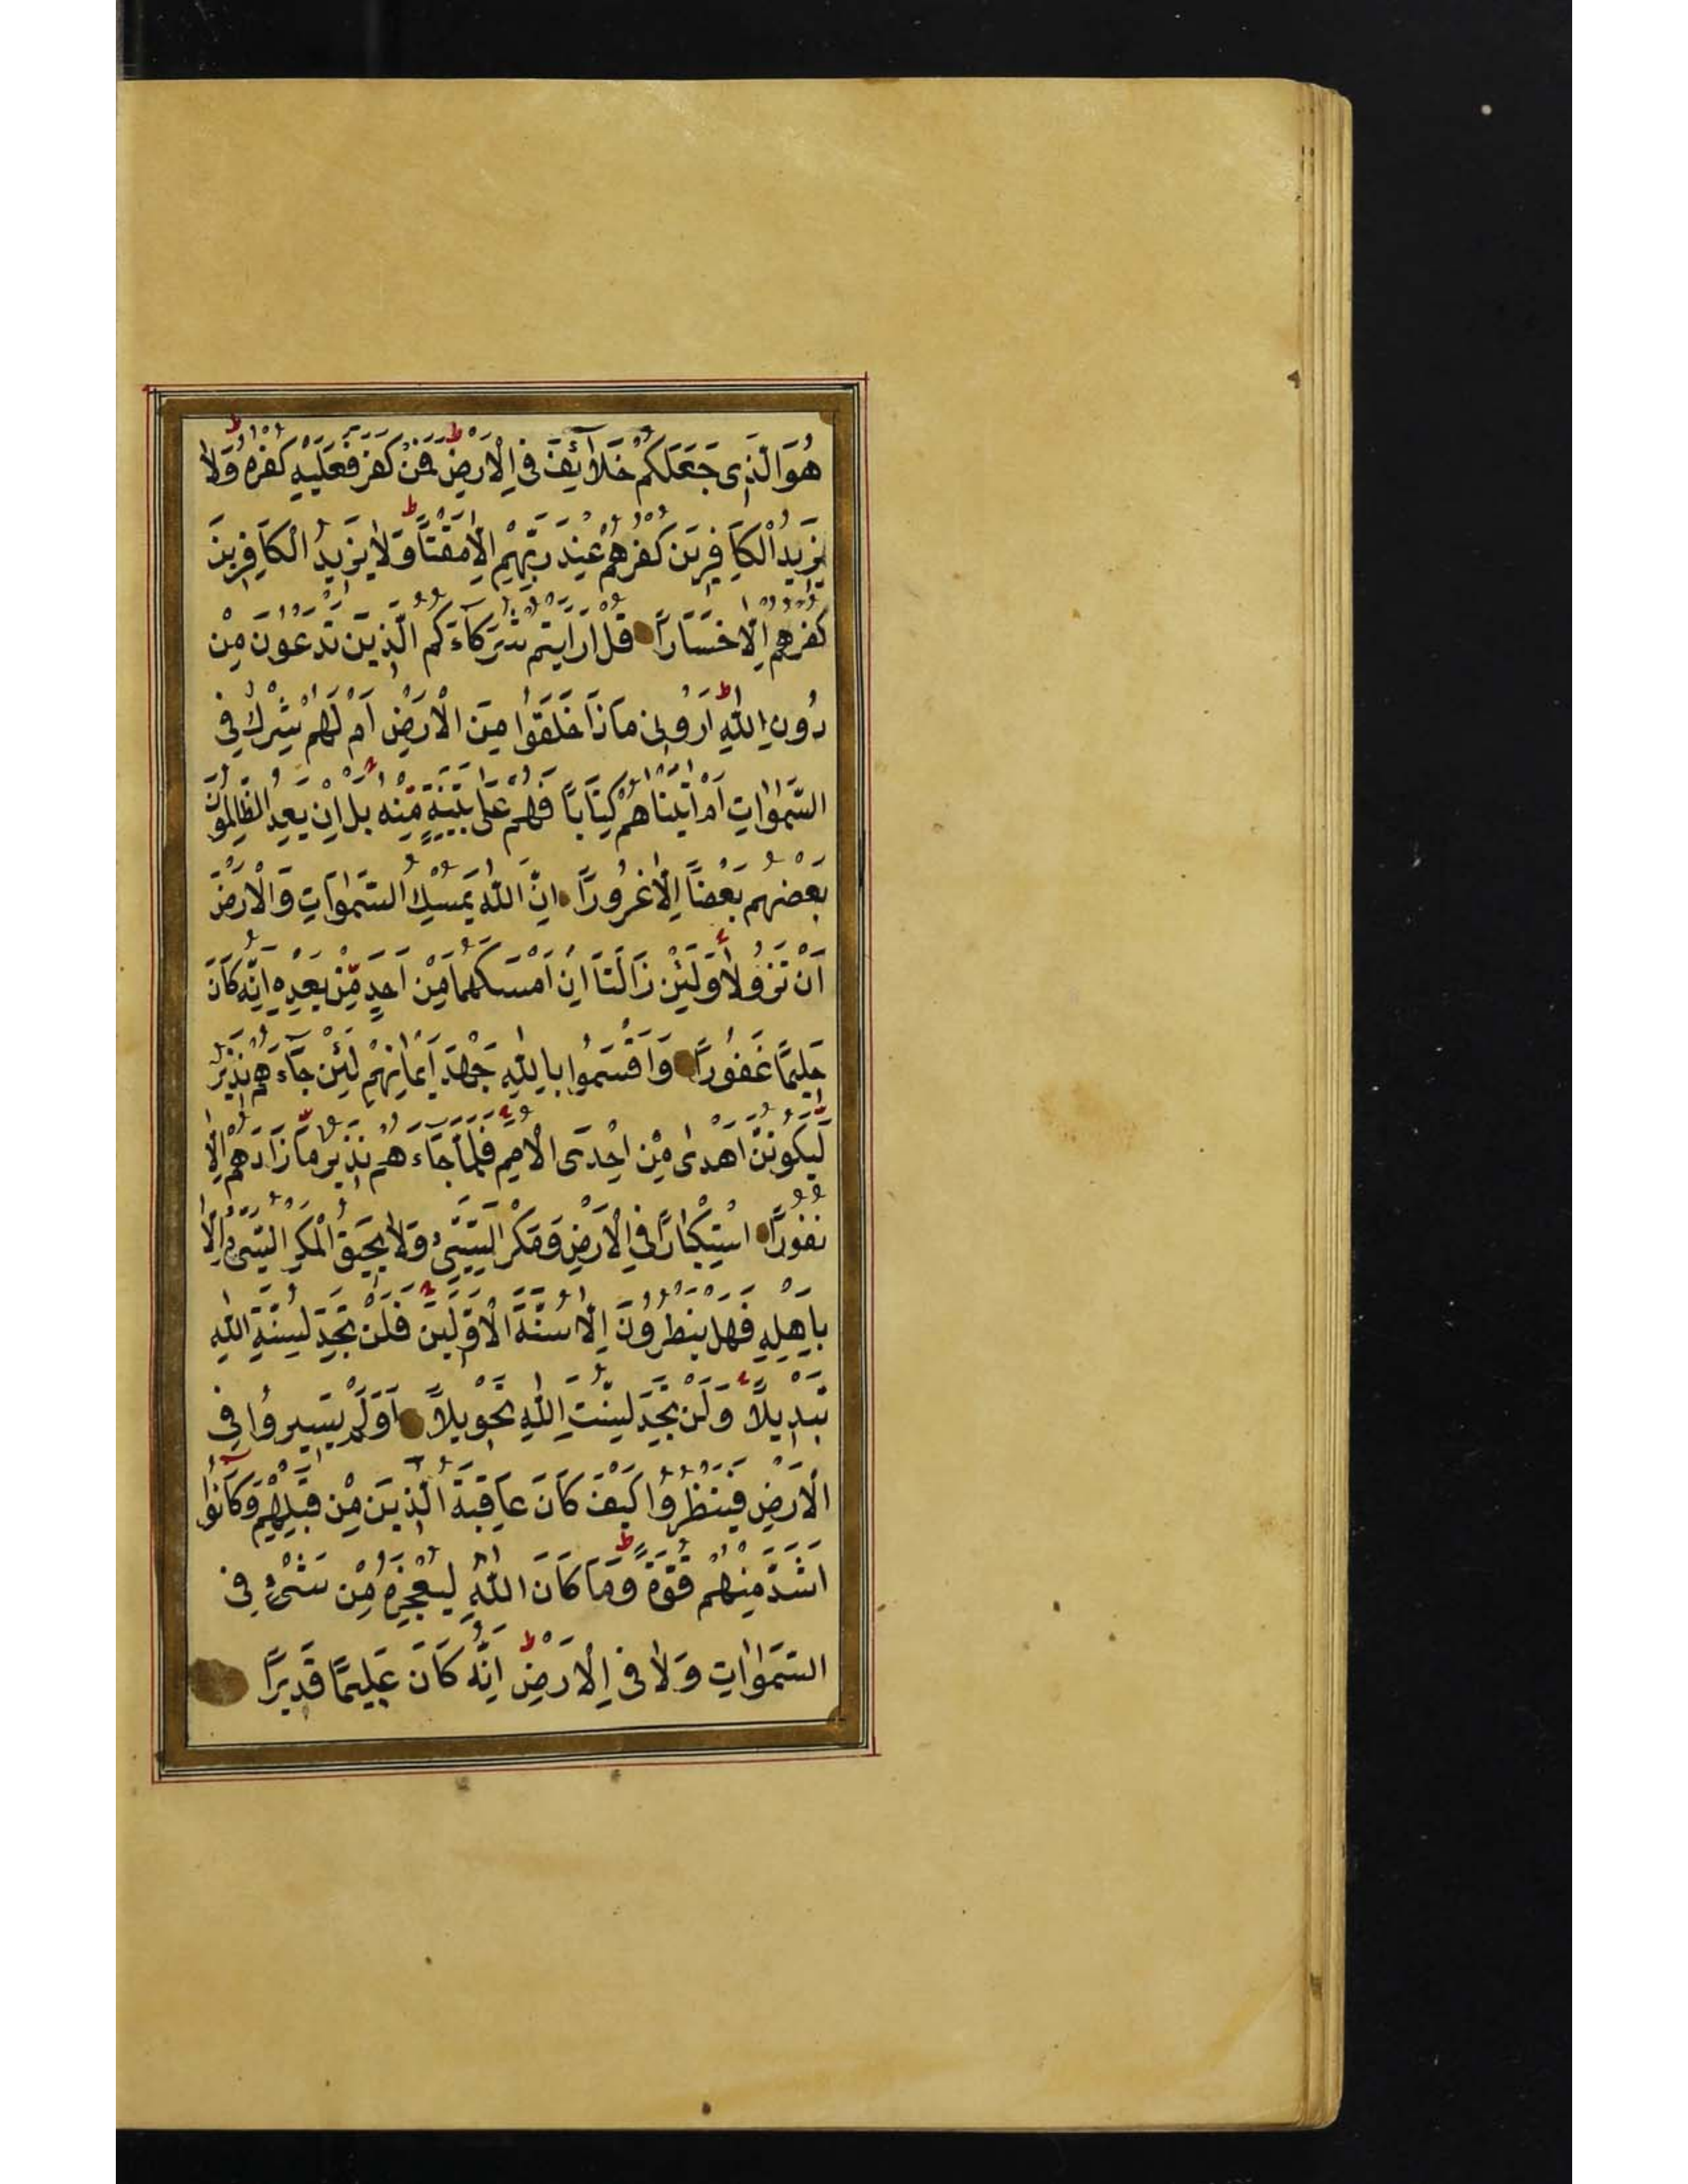 هُوَ الَّذِى جَعَلَكُمْ خَلَآئِفَ فِى الْاَرْضِ فَمَنْ كَفَرَ فَعَلَيْهِ كُفْرُهُ وَلَا
يَزِيدُ الْكَافِرِينَ كُفْرُهُمْ عِنْدَ رَبِّهِمْ اِلَّا مَقْتًا وَلَا يَزِيدُ الْكَافِرِينَ
كُفْرُهُمْ اِلَّا خَسَارًا قُلْ اَرَاَيْتُمْ شُرَكَآءَكُمُ الَّذِينَ تَدْعُونَ مِنْ
دُونِ اللّٰهِ اَرُونِى مَاذَا خَلَقُوا مِنَ الْاَرْضِ اَمْ لَهُمْ شِرْكٌ فِى
السَّمٰوَاتِ اَمْ اٰتَيْنَاهُمْ كِتَابًا فَهُمْ عَلٰى بَيِّنَةٍ مِّنْهُ بَلْ اِنْ يَعِدُ الظَّالِمُونَ
بَعْضُهُمْ بَعْضًا اِلَّا غُرُورًا اِنَّ اللّٰهَ يُمْسِكُ السَّمٰوَاتِ وَالْاَرْضَ
اَنْ تَزُولَا وَلَئِنْ زَالَتَا اِنْ اَمْسَكَهُمَا مِنْ اَحَدٍ مِّنْ بَعْدِهِ اِنَّهُ كَانَ
حَلِيمًا غَفُورًا وَاَقْسَمُوا بِاللّٰهِ جَهْدَ اَيْمَانِهِمْ لَئِنْ جَآءَهُمْ نَذِيرٌ
لَّيَكُونُنَّ اَهْدٰى مِنْ اِحْدَى الْاُمَمِ فَلَمَّا جَآءَهُمْ نَذِيرٌ مَّا زَادَهُمْ اِلَّا
نُفُورًا اسْتِكْبَارًا فِى الْاَرْضِ وَمَكْرَ السَّيِّئِ وَلَا يَحِيقُ الْمَكْرُ السَّيِّئُ اِلَّا
بِاَهْلِهِ فَهَلْ يَنْظُرُونَ اِلَّا سُنَّةَ الْاَوَّلِينَ فَلَنْ تَجِدَ لِسُنَّةِ اللّٰهِ
تَبْدِيلًا وَلَنْ تَجِدَ لِسُنَّتِ اللّٰهِ تَحْوِيلًا اَوَلَمْ يَسِيرُوا فِى
الْاَرْضِ فَيَنْظُرُوا كَيْفَ كَانَ عَاقِبَةُ الَّذِينَ مِنْ قَبْلِهِمْ وَكَانُوا
اَشَدَّ مِنْهُمْ قُوَّةً وَمَا كَانَ اللّٰهُ لِيُعْجِزَهُ مِنْ شَىْءٍ فِى
السَّمٰوَاتِ وَلَا فِى الْاَرْضِ اِنَّهُ كَانَ عَلِيمًا قَدِيرًا